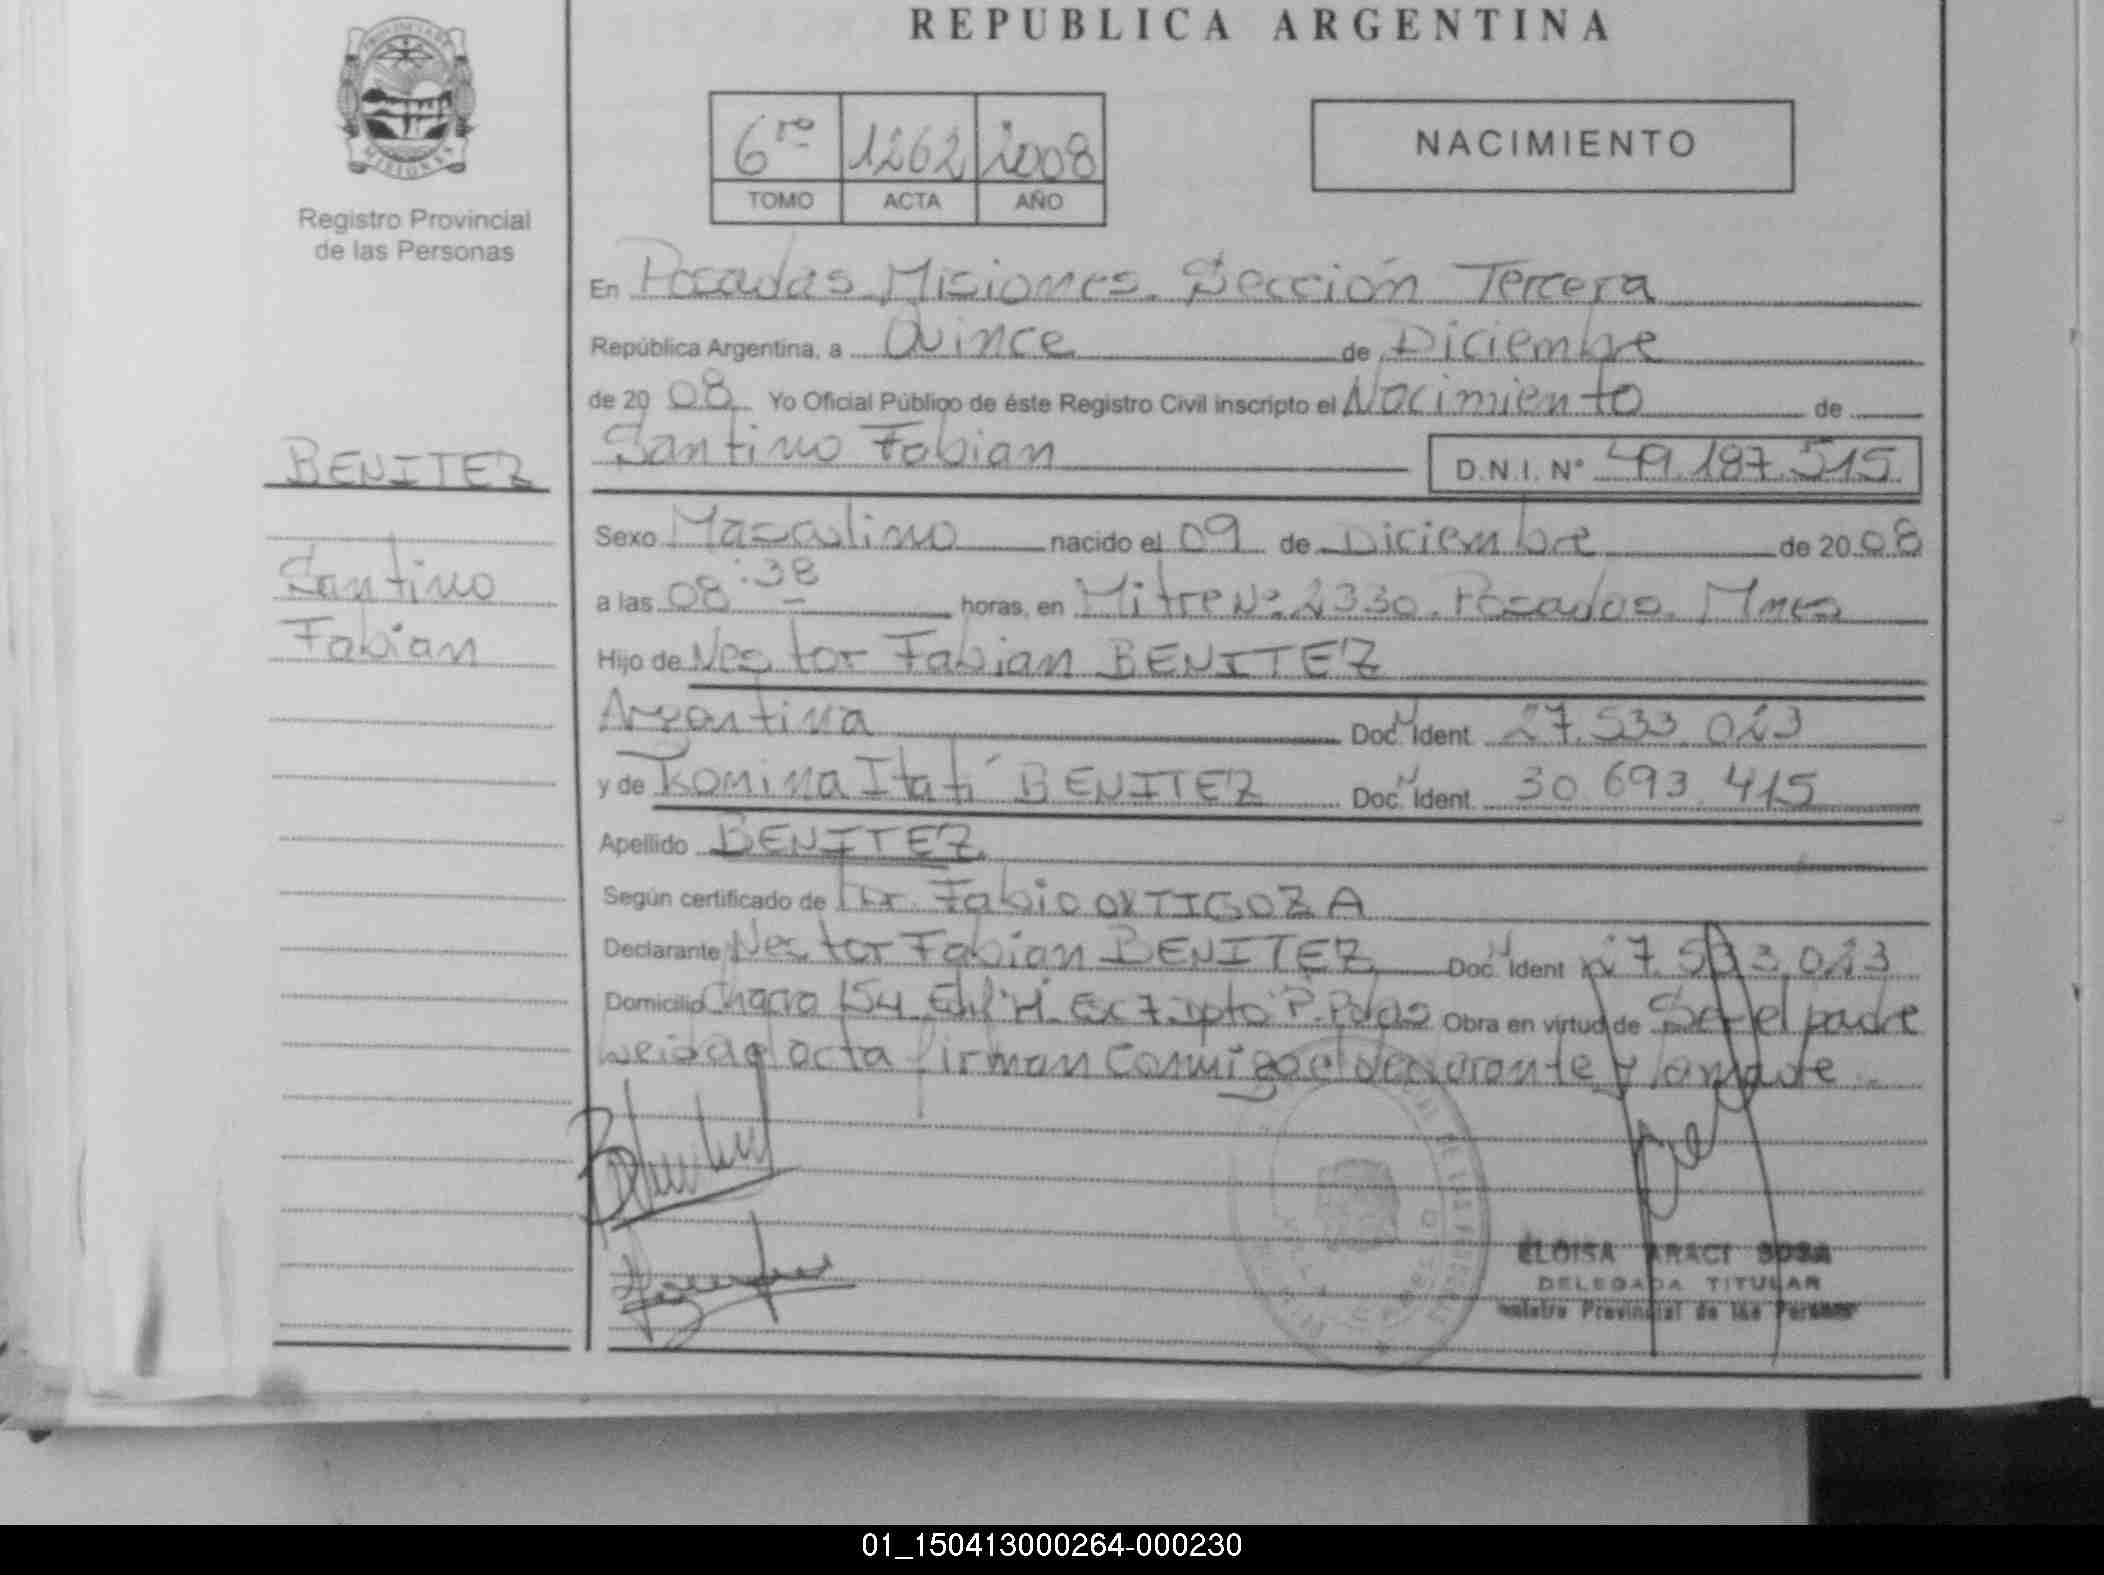 REPUBLICA ARGENTINA
PROVINCIA DE
MISIONES
Registro Provincial
de las Personas
6ro 1262 2008
TOMO ACTA AÑO
NACIMIENTO
En Posadas Misiones. Sección Tercera
República Argentina, a Quince de Diciembre
de 2008 Yo Oficial Público de éste Registro Civil inscripto el Nacimiento de
Santino Fabian D.N.I. N° 49.187.515
BENITEZ
Santino
Fabian
Sexo Masculino nacido el 09 de Diciembre de 2008
a las 08:38 horas, en Mitre No 2330. Posadas. Mnes
Hijo de Nestor Fabian BENITEZ
Argentina Doc. Ident 27.533.023
y de Romina Itatí BENITEZ Doc. Ident 30.693.415
Apellido BENITEZ
Según certificado de Dr. Fabio ORTIGOZA
Declarante Nestor Fabian BENITEZ Doc. Ident 27.533.023
Domicilio Chacra 154 Edif "H" Esc 7 dpto P. Pdas Obra en virtud de Ser el padre
acta firman conmigo el declarante y la madre
ELOISA ARACI SOSA
DELEGADA TITULAR
Registro Provincial de las Personas
01_150413000264-000230